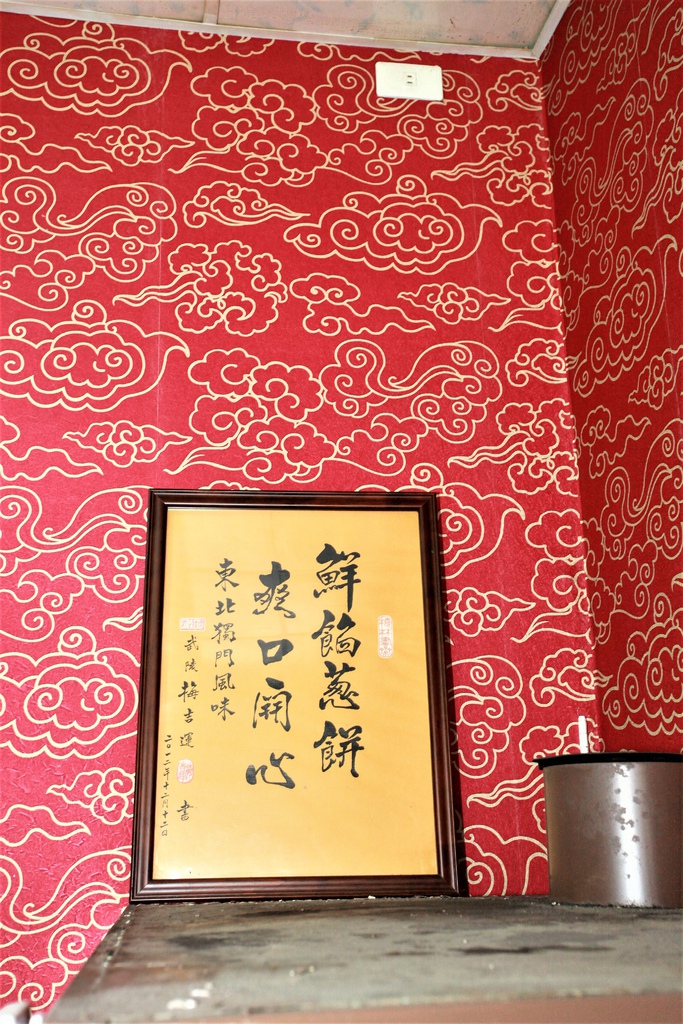 鮮餡蔥餅
爽口開心
東北獨門風味
武陵梅吉運書
二〇一二年十二月十二日